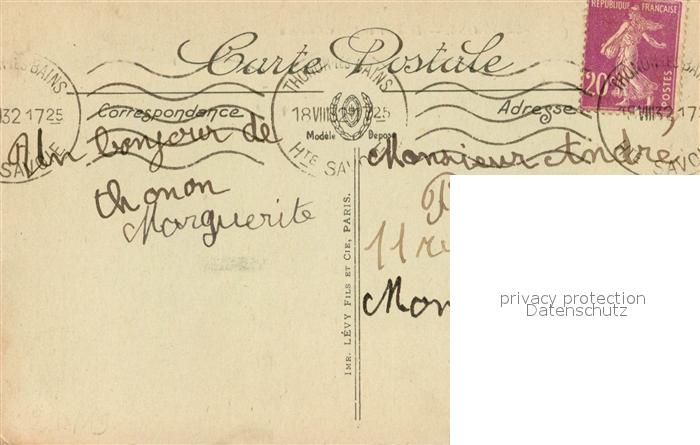 RÉPUBLIQUE FRANÇAISE
20
POSTES
Carte Postale
THONON LES BAINS
18 VIII 32 1725
HTE SAVOIE
Correspondance
Adresse
Modèle Déposé
Un bonjour de
thonon
Marguerite
Monsieur André
11 ru
Mon
IMR. LÉVY FILS ET CIE, PARIS.
privacy protection
Datenschutz